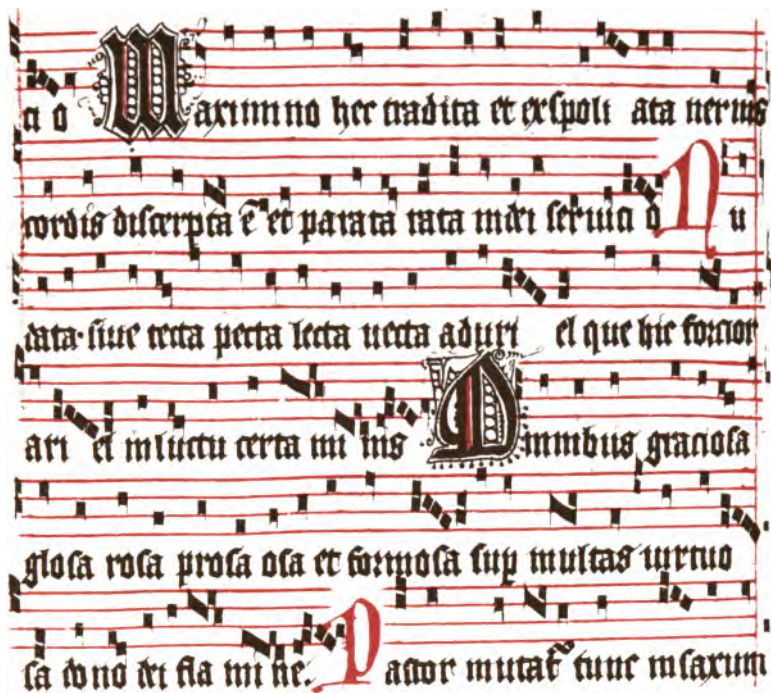 ci o Maximino hec tradita et exspoli ata neruis
cordis discerpta ē et parata rata in dei seruici o Nu
data siue tecta pecta lecta uecta aduri el que hic forcior
ari et in luctu certa mi nis Omnibus graciosa
glosa rosa prosa osa et formosa sup multas uirtuo
sa dono dei fla mi ne. Pastor mutat᷑ tunc in saxum